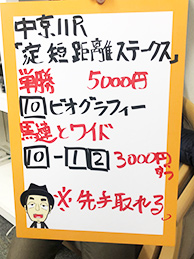 中京11R
「淀短距離ステークス」
単勝 5000円
10ビオグラフィー
馬連とワイド
10-12 3000円ずつ
※先手取れる。